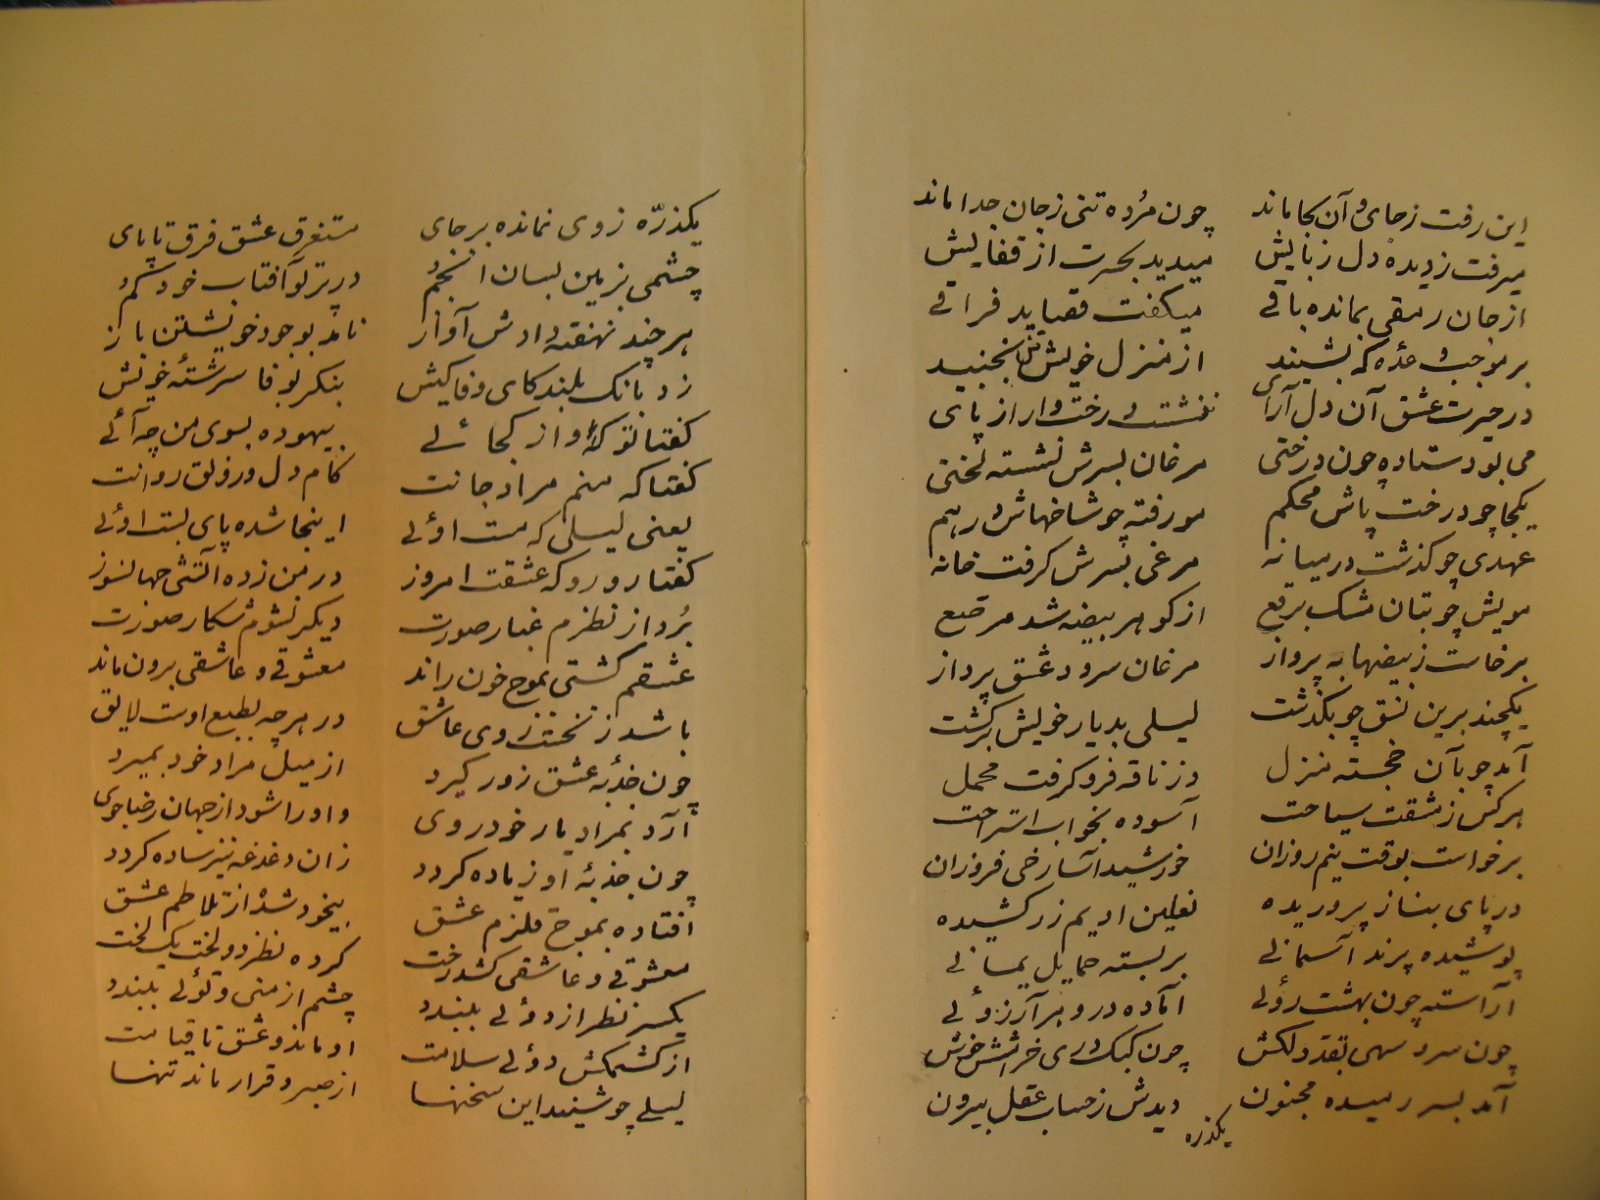 این رفت ز جای و آن بجا ماند چون مُرده تنی ز جان جدا ماند
میرفت ز دیده دل ز بایش میدید بحسرت از قفایش
از جان رمقی بمانده باقے میگفت قصاید فراقے
بر موجب وعده که بشنید از منزل خویشتن نجنبید
در حیرت عشق آن دل آرای ننشست درخت وار از پای
می بود ستاده چون درختی مرغان بسرش نشسته لختی
یکجا چو درخت پاش محکم مو رفته چو شاخهاش درهم
عهدی چو گذشت در میانه مرغی بسرش گرفت خانه
مویش چو بتان مشک برقع از گوهر بیضه شد مرصع
برخاست ز بیضها به پرواز مرغان سرود عشق پرداز
یکچند برین نسق چو بگذشت لیلی بدیار خویش برگشت
آمد چو بآن خجسته منزل وز ناقه فرو گرفت محمل
هر کس ز مشقت سیاحت آسوده بخواب استراحت
برخواست بوقت نیم روزان خورشید آسا رخی فروزان
در پای بناز پروریده نعلین ادیم زر کشیده
پوشیده پرند آسمانے بر بسته حمایل یمانے
آراسته چون بهشت روئے آماده درو هر آرزوئے
چون سرو سهی بقد دلکش چون کبک دری خرامشش خوش
آمد بسر رمیده مجنون دیدش ز حساب عقل بیرون
یکذره
یکذرّه ز وی نمانده بر جای مستغرق عشق فرق تا پای
چشمی بزمین بسان انجم در پرتو آفتاب خود گم
هر چند نهفته دادش آواز نامد بوجود خویشتن باز
زد بانگ بلند کای وفا کیش بنگر بوفا سرشتهٔ خویش
گفتا تو کهٔ و از کجائے بیهوده بسوی من چه آئے
گفتا که منم مراد جانت کام دل و رونق روانت
یعنی لیلی که مست اوئے اینجا شده پای بست اوئے
گفتا رو رو که عشقت امروز در من زده آتشی جهانسوز
بُرد از نظرم غبار صورت دیگر نشوم شکار صورت
عشقم کشتی بموج خون راند معشوقے و عاشقی برون ماند
باشد ز نخست روی عاشق در هر چه بطبع اوست لایق
چون جذبهٔ عشق زور گیرد از میل مراد خود بمیرد
آرد بمراد یار خود روی واو را شود از جهان رضاجوی
چون جذبهٔ او زیاده گردد زان دغدغه نیز ساده گردد
افتاده بموج قلزم عشق بیخود شده از تلاطم عشق
معشوقے و عاشقی کشد رخت گرده نظر دو لخت یک لخت
یکسر نظر از دوئے ببندد چشم از منی و توئے ببندد
از کشمکش دوئے سلامت او ماند و عشق تا قیامت
لیلے چو شنید این سخنها از صبر و قرار ماند تنها